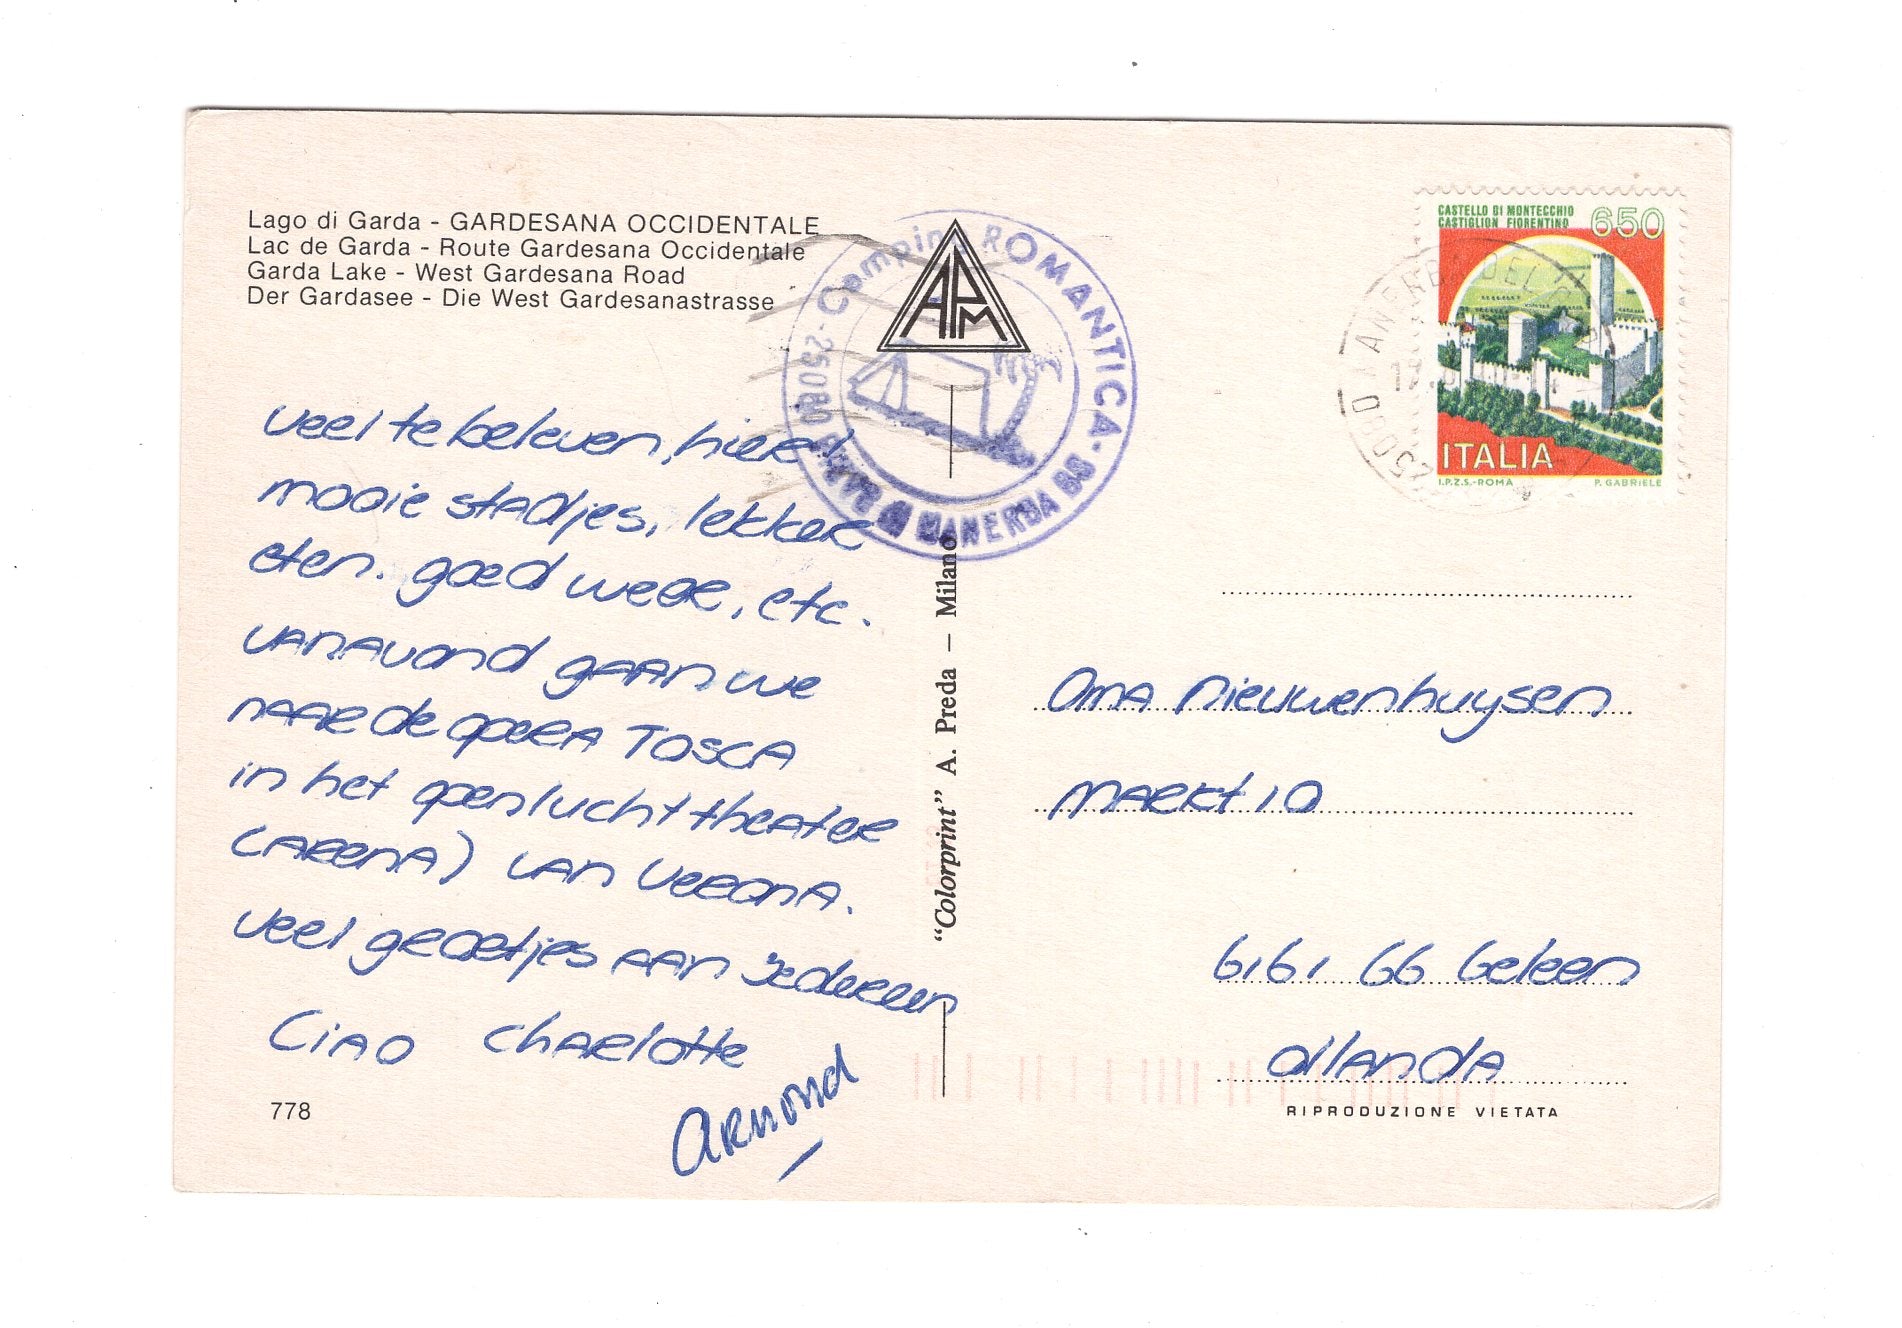 Lago di Garda - GARDESANA OCCIDENTALE
Lac de Garda - Route Gardesana Occidentale
Garda Lake - West Gardesana Road
Der Gardasee - Die West Gardesanastrasse
Veel te beleven, hier!
mooie stadjes, lekker
eten. goed weer, etc.
vanavond gaan we
naar de opera TOSCA
in het openluchttheater
(Arena) van Verona.
Veel groetjes aan iedereen
Ciao Charlotte
Armond
778
APM
Camping ROMANTICA - 25080 PIEVE DI MANERBA BS
"Colorprint" A. Preda - Milano
CASTELLO DI MONTECCHIO
CASTIGLION FIORENTINO
650
ITALIA
I.P.Z.S.-ROMA P. GABRIELE
25080 MANERBA DEL
Oma Nieuwenhuysen
Markt 10
6161 GG Geleen
Ollanda
RIPRODUZIONE VIETATA